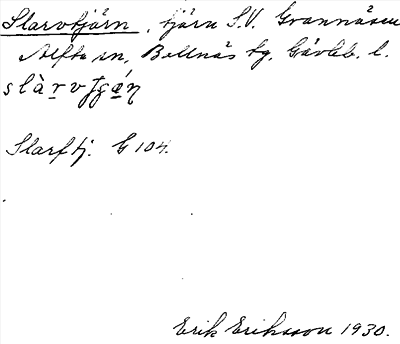 Slarvtjärn, tjärn S.V. Grannäsen
Alfta sn, Bollnäs tg, Gävleb. l.
slàrvʃgą́η
Slarftj. G 104.
Erik Eriksson 1930.